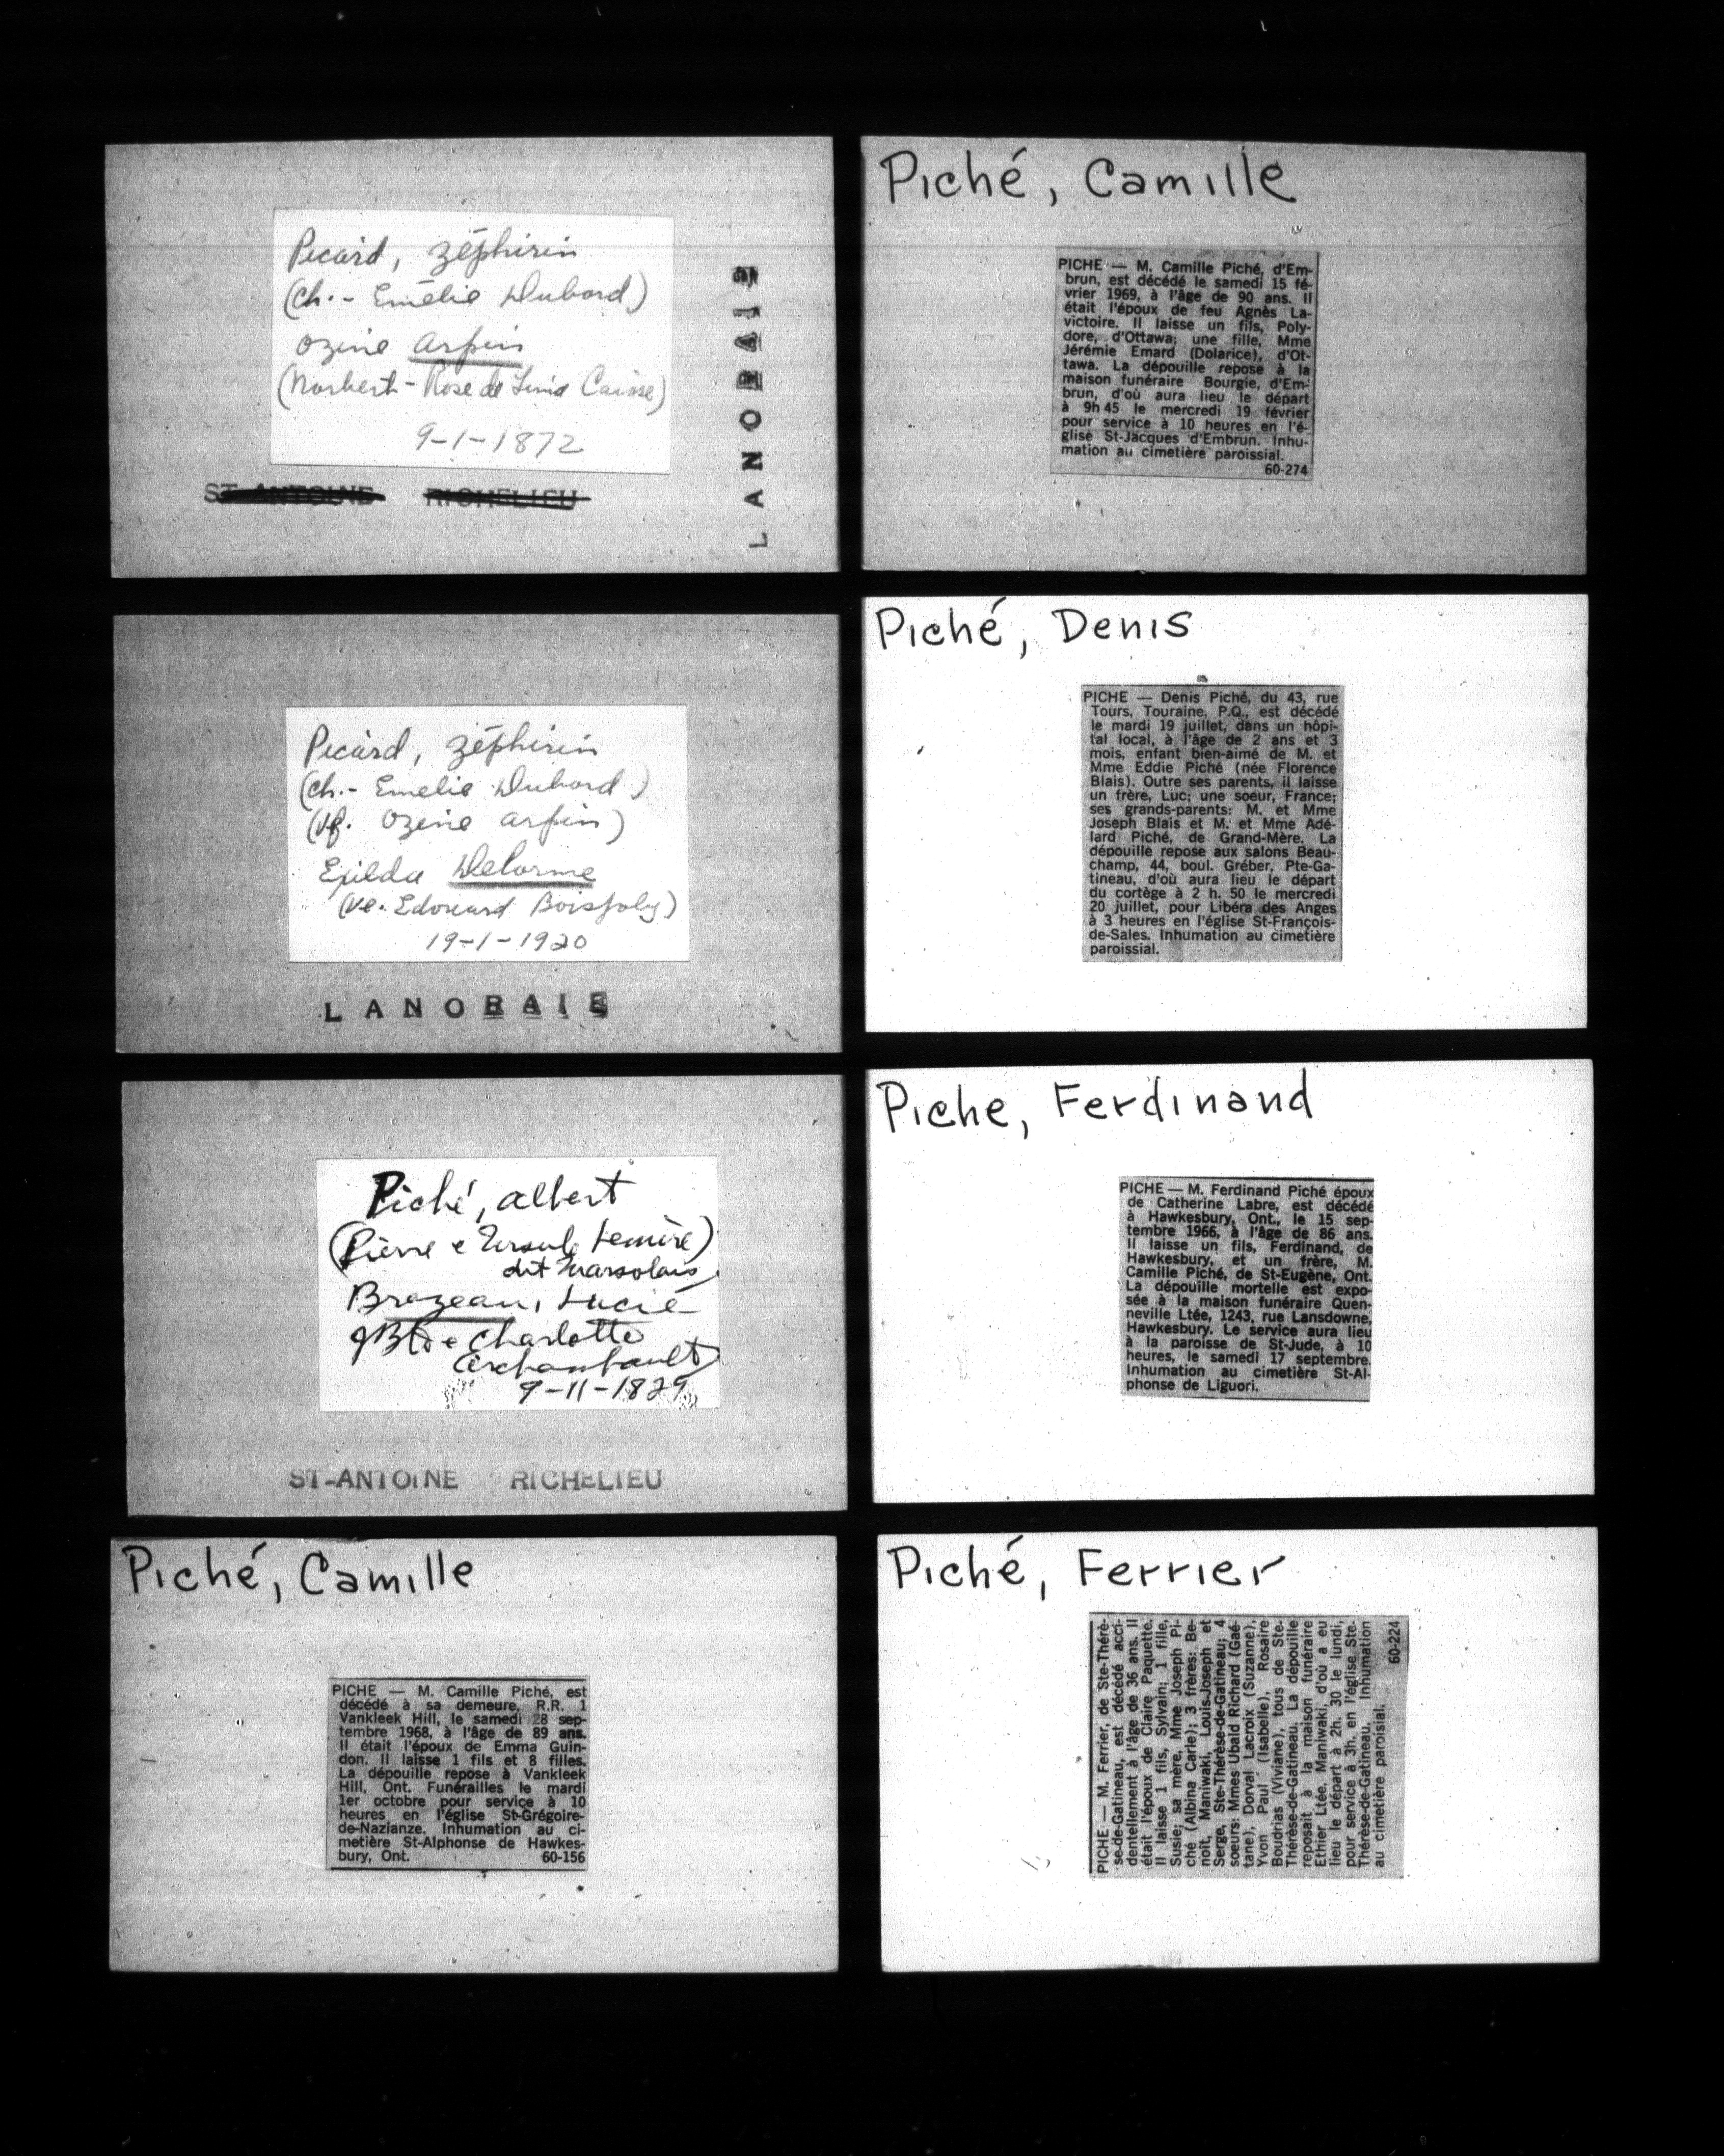 Picard, Zéphirin
(Ch. - Emélie Dubord)
Ozine Arpin
(Norbert - Rose de Lima Caisse)
9-1-1872
ST-ANTOINE RICHELIEU
LANORAIE
Picard, Zéphirin
(Ch. - Emélie Dubord)
(Vf. Ozine Arpin)
Exilda Delorme
(Ve. Edouard Boisjoly)
19-1-1920
LANORAIE
Piché, Albert
(Pierre e Ursule Lemire)
dit Marsolais
Brazeau, Lucie
JBte e Charlotte
Archambault)
9-11-1829
ST-ANTOINE RICHELIEU
Piché, Camille
PICHE — M. Camille Piché, est
décédé à sa demeure, R.R. 1
Vankleek Hill, le samedi 28 sep-
tembre 1968, à l'âge de 89 ans.
Il était l'époux de Emma Guin-
don. Il laisse 1 fils et 8 filles.
La dépouille repose à Vankleek
Hill, Ont. Funérailles le mardi
1er octobre pour service à 10
heures en l'église St-Grégoire-
de-Nazianze. Inhumation au ci-
metière St-Alphonse de Hawkes-
bury, Ont. 60-156
Piché, Camille
PICHE — M. Camille Piché, d'Em-
brun, est décédé le samedi 15 fé-
vrier 1969, à l'âge de 90 ans. Il
était l'époux de feu Agnès La-
victoire. Il laisse un fils, Poly-
dore, d'Ottawa; une fille, Mme
Jérémie Emard (Dolarice), d'Ot-
tawa. La dépouille repose à la
maison funéraire Bourgie, d'Em-
brun, d'où aura lieu le départ
à 9h 45 le mercredi 19 février
pour service à 10 heures en l'é-
glise St-Jacques d'Embrun. Inhu-
mation au cimetière paroissial.
60-274
Piché, Denis
PICHE — Denis Piché, du 43, rue
Tours, Touraine, P.Q., est décédé
le mardi 19 juillet, dans un hôpi-
tal local, à l'âge de 2 ans et 3
mois, enfant bien-aimé de M. et
Mme Eddie Piché (née Florence
Blais). Outre ses parents, il laisse
un frère, Luc; une soeur, France;
ses grands-parents: M. et Mme
Joseph Blais et M. et Mme Adé-
lard Piché, de Grand-Mère. La
dépouille repose aux salons Beau-
champ, 44, boul. Gréber, Pte-Ga-
tineau, d'où aura lieu le départ
du cortège à 2 h. 50 le mercredi
20 juillet, pour Libéra des Anges
à 3 heures en l'église St-François-
de-Sales. Inhumation au cimetière
paroissial.
Piche, Ferdinand
PICHE — M. Ferdinand Piché époux
de Catherine Labre, est décédé
à Hawkesbury, Ont., le 15 sep-
tembre 1966, à l'âge de 86 ans.
Il laisse un fils, Ferdinand, de
Hawkesbury, et un frère, M.
Camille Piché, de St-Eugène, Ont.
La dépouille mortelle est expo-
sée à la maison funéraire Quen-
neville Ltée, 1243, rue Lansdowne,
Hawkesbury. Le service aura lieu
à la paroisse de St-Jude, à 10
heures, le samedi 17 septembre.
Inhumation au cimetière St-Al-
phonse de Liguori.
Piché, Ferrier
PICHE — M. Ferrier, de Ste-Thérè-
se-de-Gatineau, est décédé acci-
dentellement à l'âge de 36 ans. Il
était l'époux de Claire Paquette.
Il laisse 1 fils, Sylvain; 1 fille,
Susie; sa mère, Mme Joseph Pi-
ché (Albina Carle); 3 frères: Be-
noît, Maniwaki, Louis-Joseph et
Serge, Ste-Thérèse-de-Gatineau; 4
soeurs: Mmes Ubald Richard (Gaé-
tane), Dorval Lacroix (Suzanne),
Yvon Paul (Isabelle), Rosaire
Boudrias (Viviane), tous de Ste-
Thérèse-de-Gatineau. La dépouille
reposait à la maison funéraire
Ethier Ltée, Maniwaki, d'où a eu
lieu le départ à 2h. 30 le lundi,
pour service à 3h. en l'église Ste-
Thérèse-de-Gatineau. Inhumation
au cimetière paroisial.
60-224